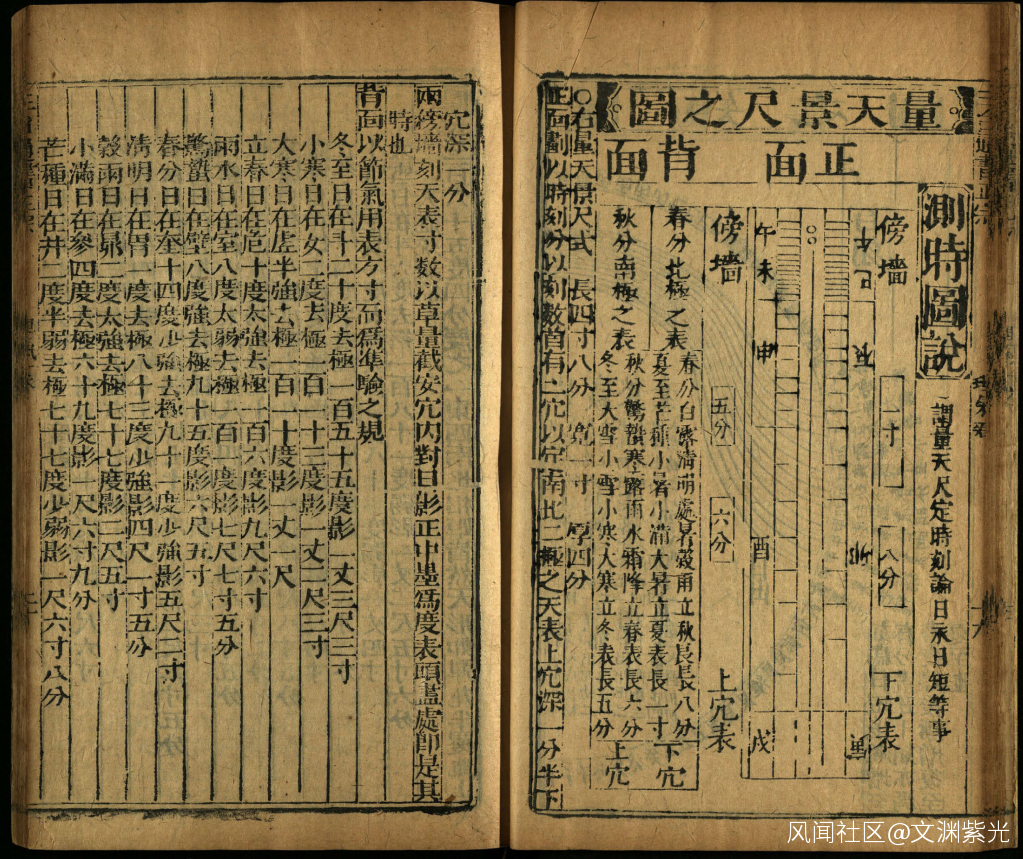 測時圖說
調量天尺定時刻論日永日短等事
量天景尺之圖
正面
背面
傍墻
一寸
八分
下穴表
午
巳
卯
寅
午
未
申
酉
戌
傍墻
五分
六分
上穴表
春分北極之表
春分白露清明處暑穀雨立秋長八分
夏至芒種小暑小滿大暑立夏表長一寸
下穴
秋分南極之表
秋分驚蟄寒露雨水霜降立春表長六分
冬至大雪小雪小寒大寒立冬表長五分
上穴
○右量天景尺式 長四寸八分 寬一寸 厚四分
正面劃以時刻分以刻數首有二穴以定南北二極之天表上穴深一分半下
穴深一分
兩傍墻刻天表寸數以草量截安穴內對日影正中墨爲度表頭盡處即是其
時也
背面以節氣用表方寸而爲準驗之規
冬至日在斗二十度去極一百五十五度影一丈三尺三寸
小寒日在女一度去極一百一十三度影一丈二尺三寸
大寒日在虛半強去極一百一十度影一丈一尺
立春日在危十度太強去極一百六度影九尺六寸
雨水日在室八度太弱去極一百一度影七尺七寸五分
驚蟄日在壁八度強去極九十五度影六尺五寸
春分日在奎十四度少強去極九十一度少強影五尺二寸
清明日在胃一度去極八十三度少強影四尺一寸五分
穀雨日在昴二度太強去極七十七度影二尺五寸
小滿日在參四度去極六十九度影一尺六寸九分
芒種日在井二度半弱去極七十七度少弱影一尺六寸八分
风闻社区@文渊紫光